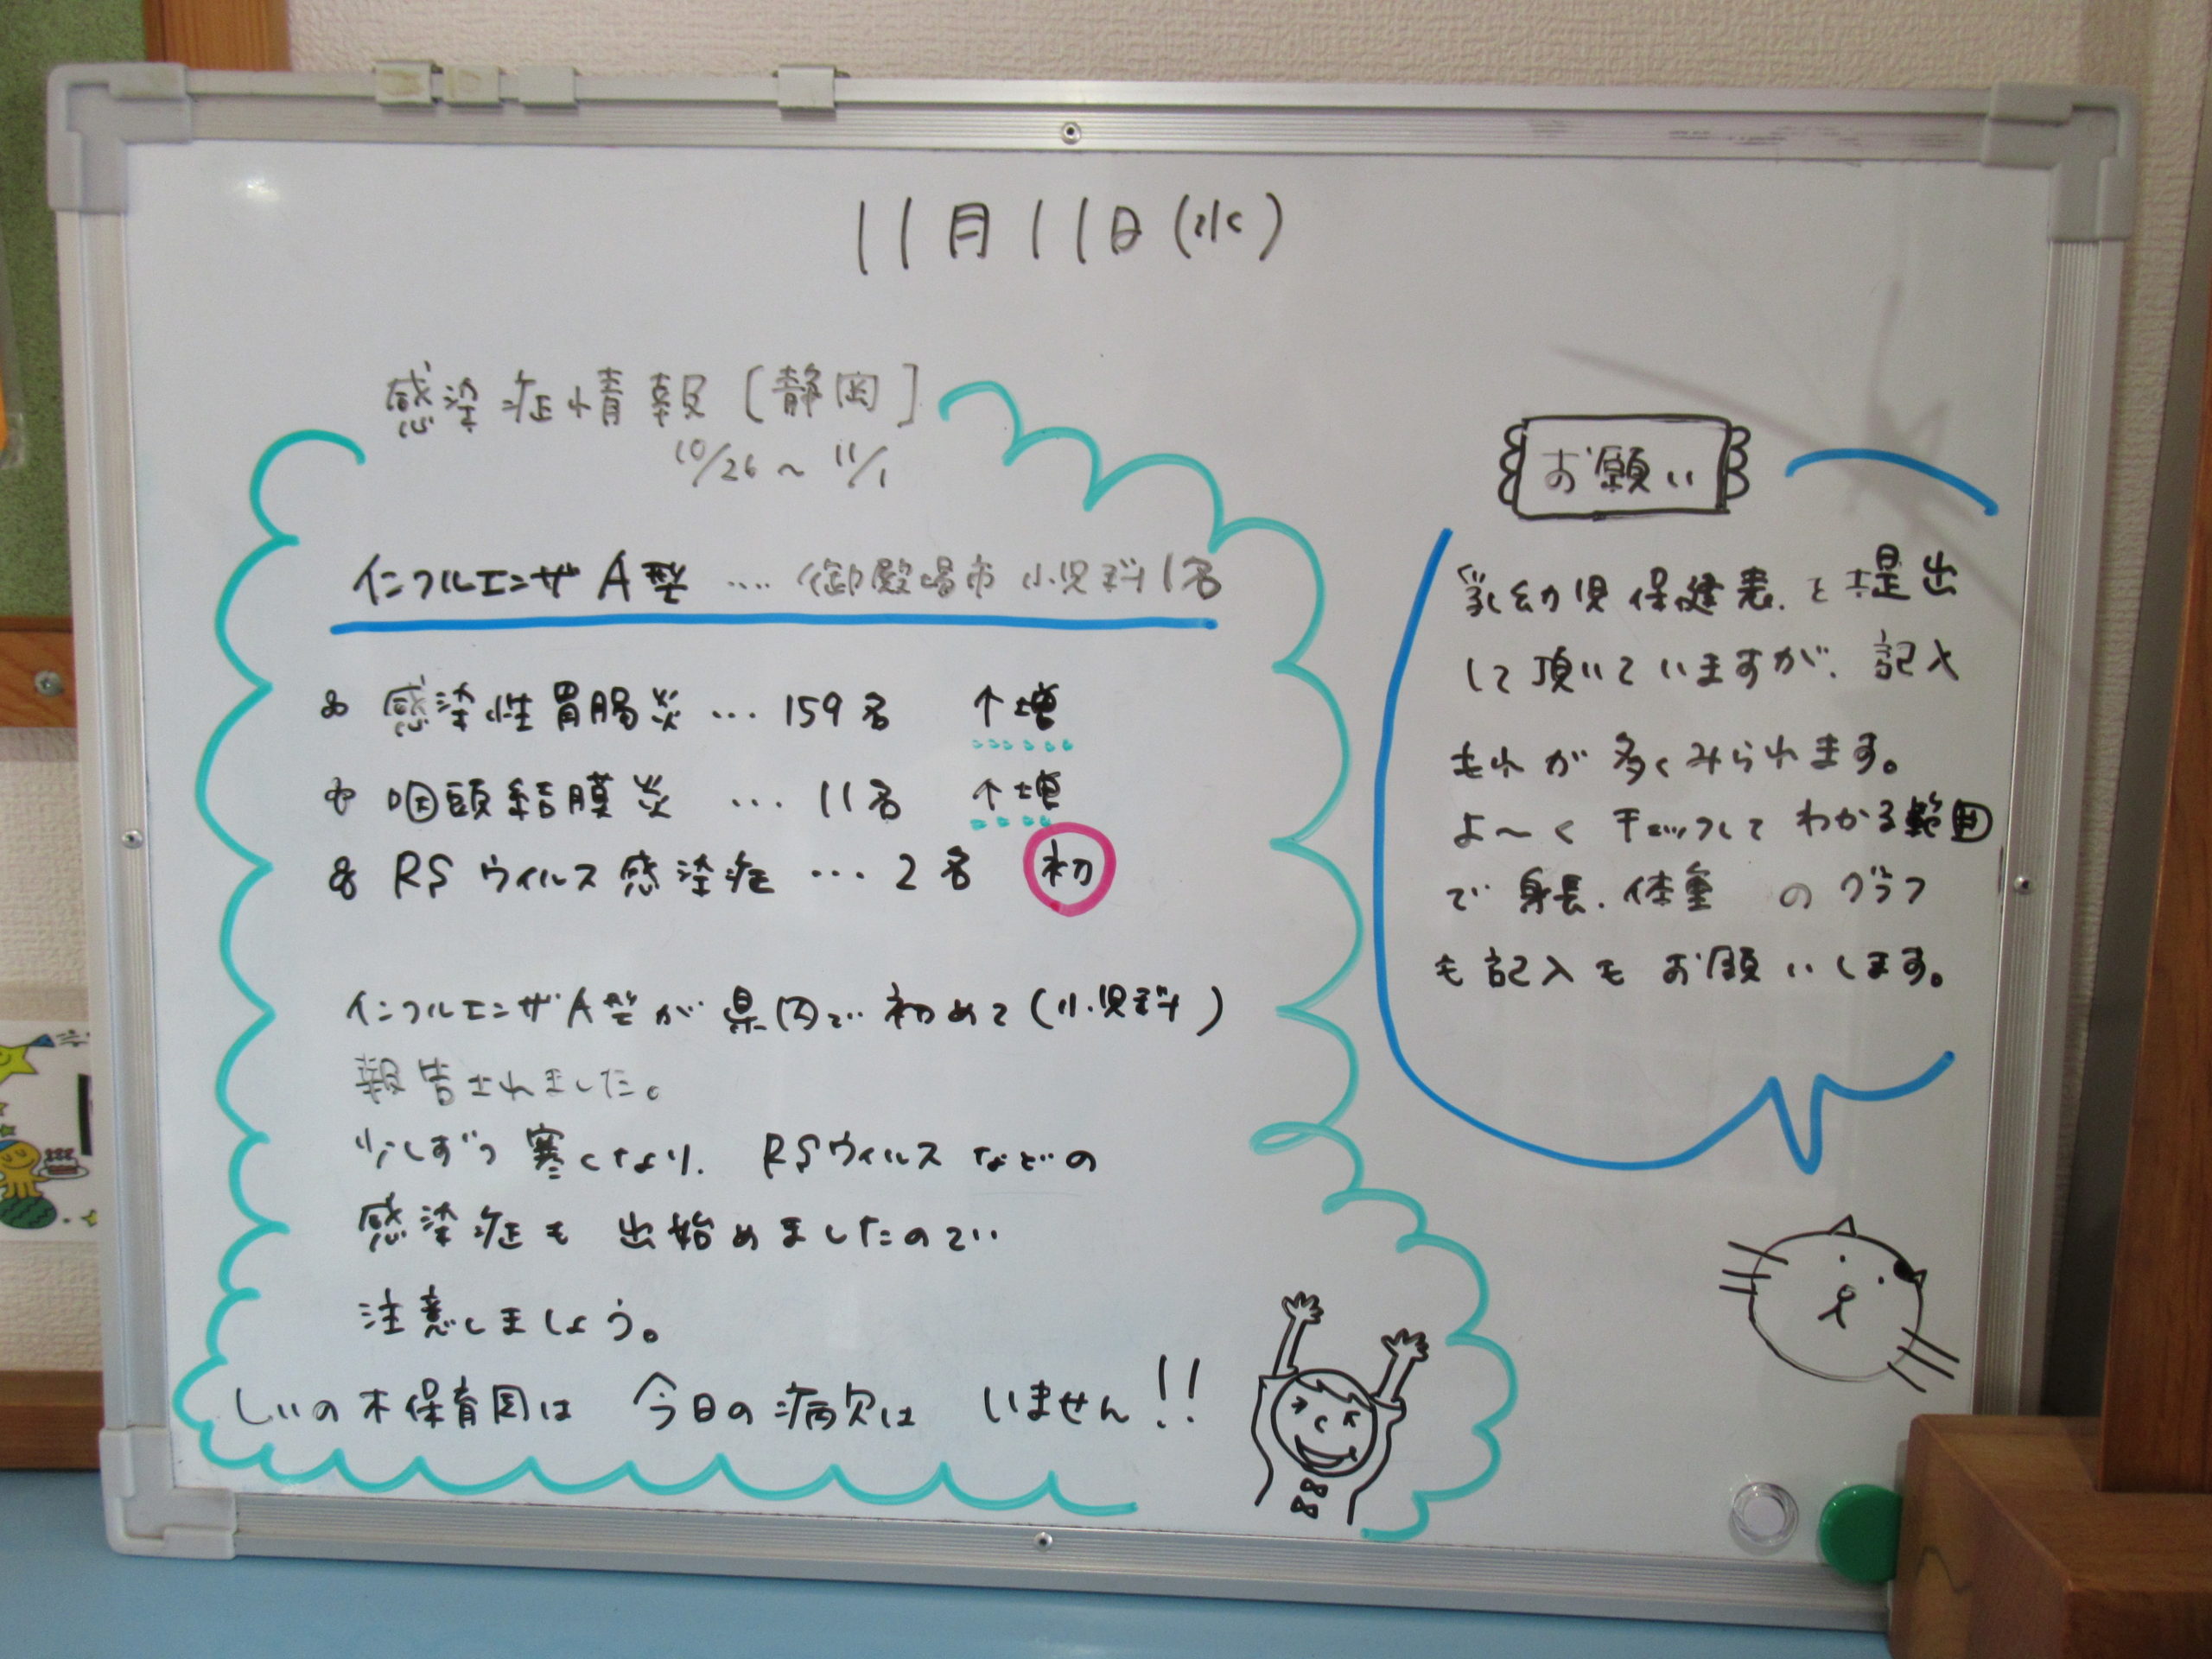 11月11日(水)
感染症情報[静岡]
10/26～11/1
インフルエンザA型 ‥‥ 御殿場市 小児科1名
感染性胃腸炎 … 159名 ↑増
咽頭結膜炎 … 11名 ↑増
RSウィルス感染症 … 2名 初
インフルエンザA型が県内で初めて(小児科)
報告されました。
少しずつ寒くなり、RSウィルスなどの
感染症も出始めましたので
注意しましょう。
しいの木保育園は 今日の病欠は いません!!
お願い
乳幼児保健表を提出
して頂いていますが、記入
もれが多くみられます。
よ～くチェックしてわかる範囲
で身長、体重 のグラフ
も記入もお願いします。